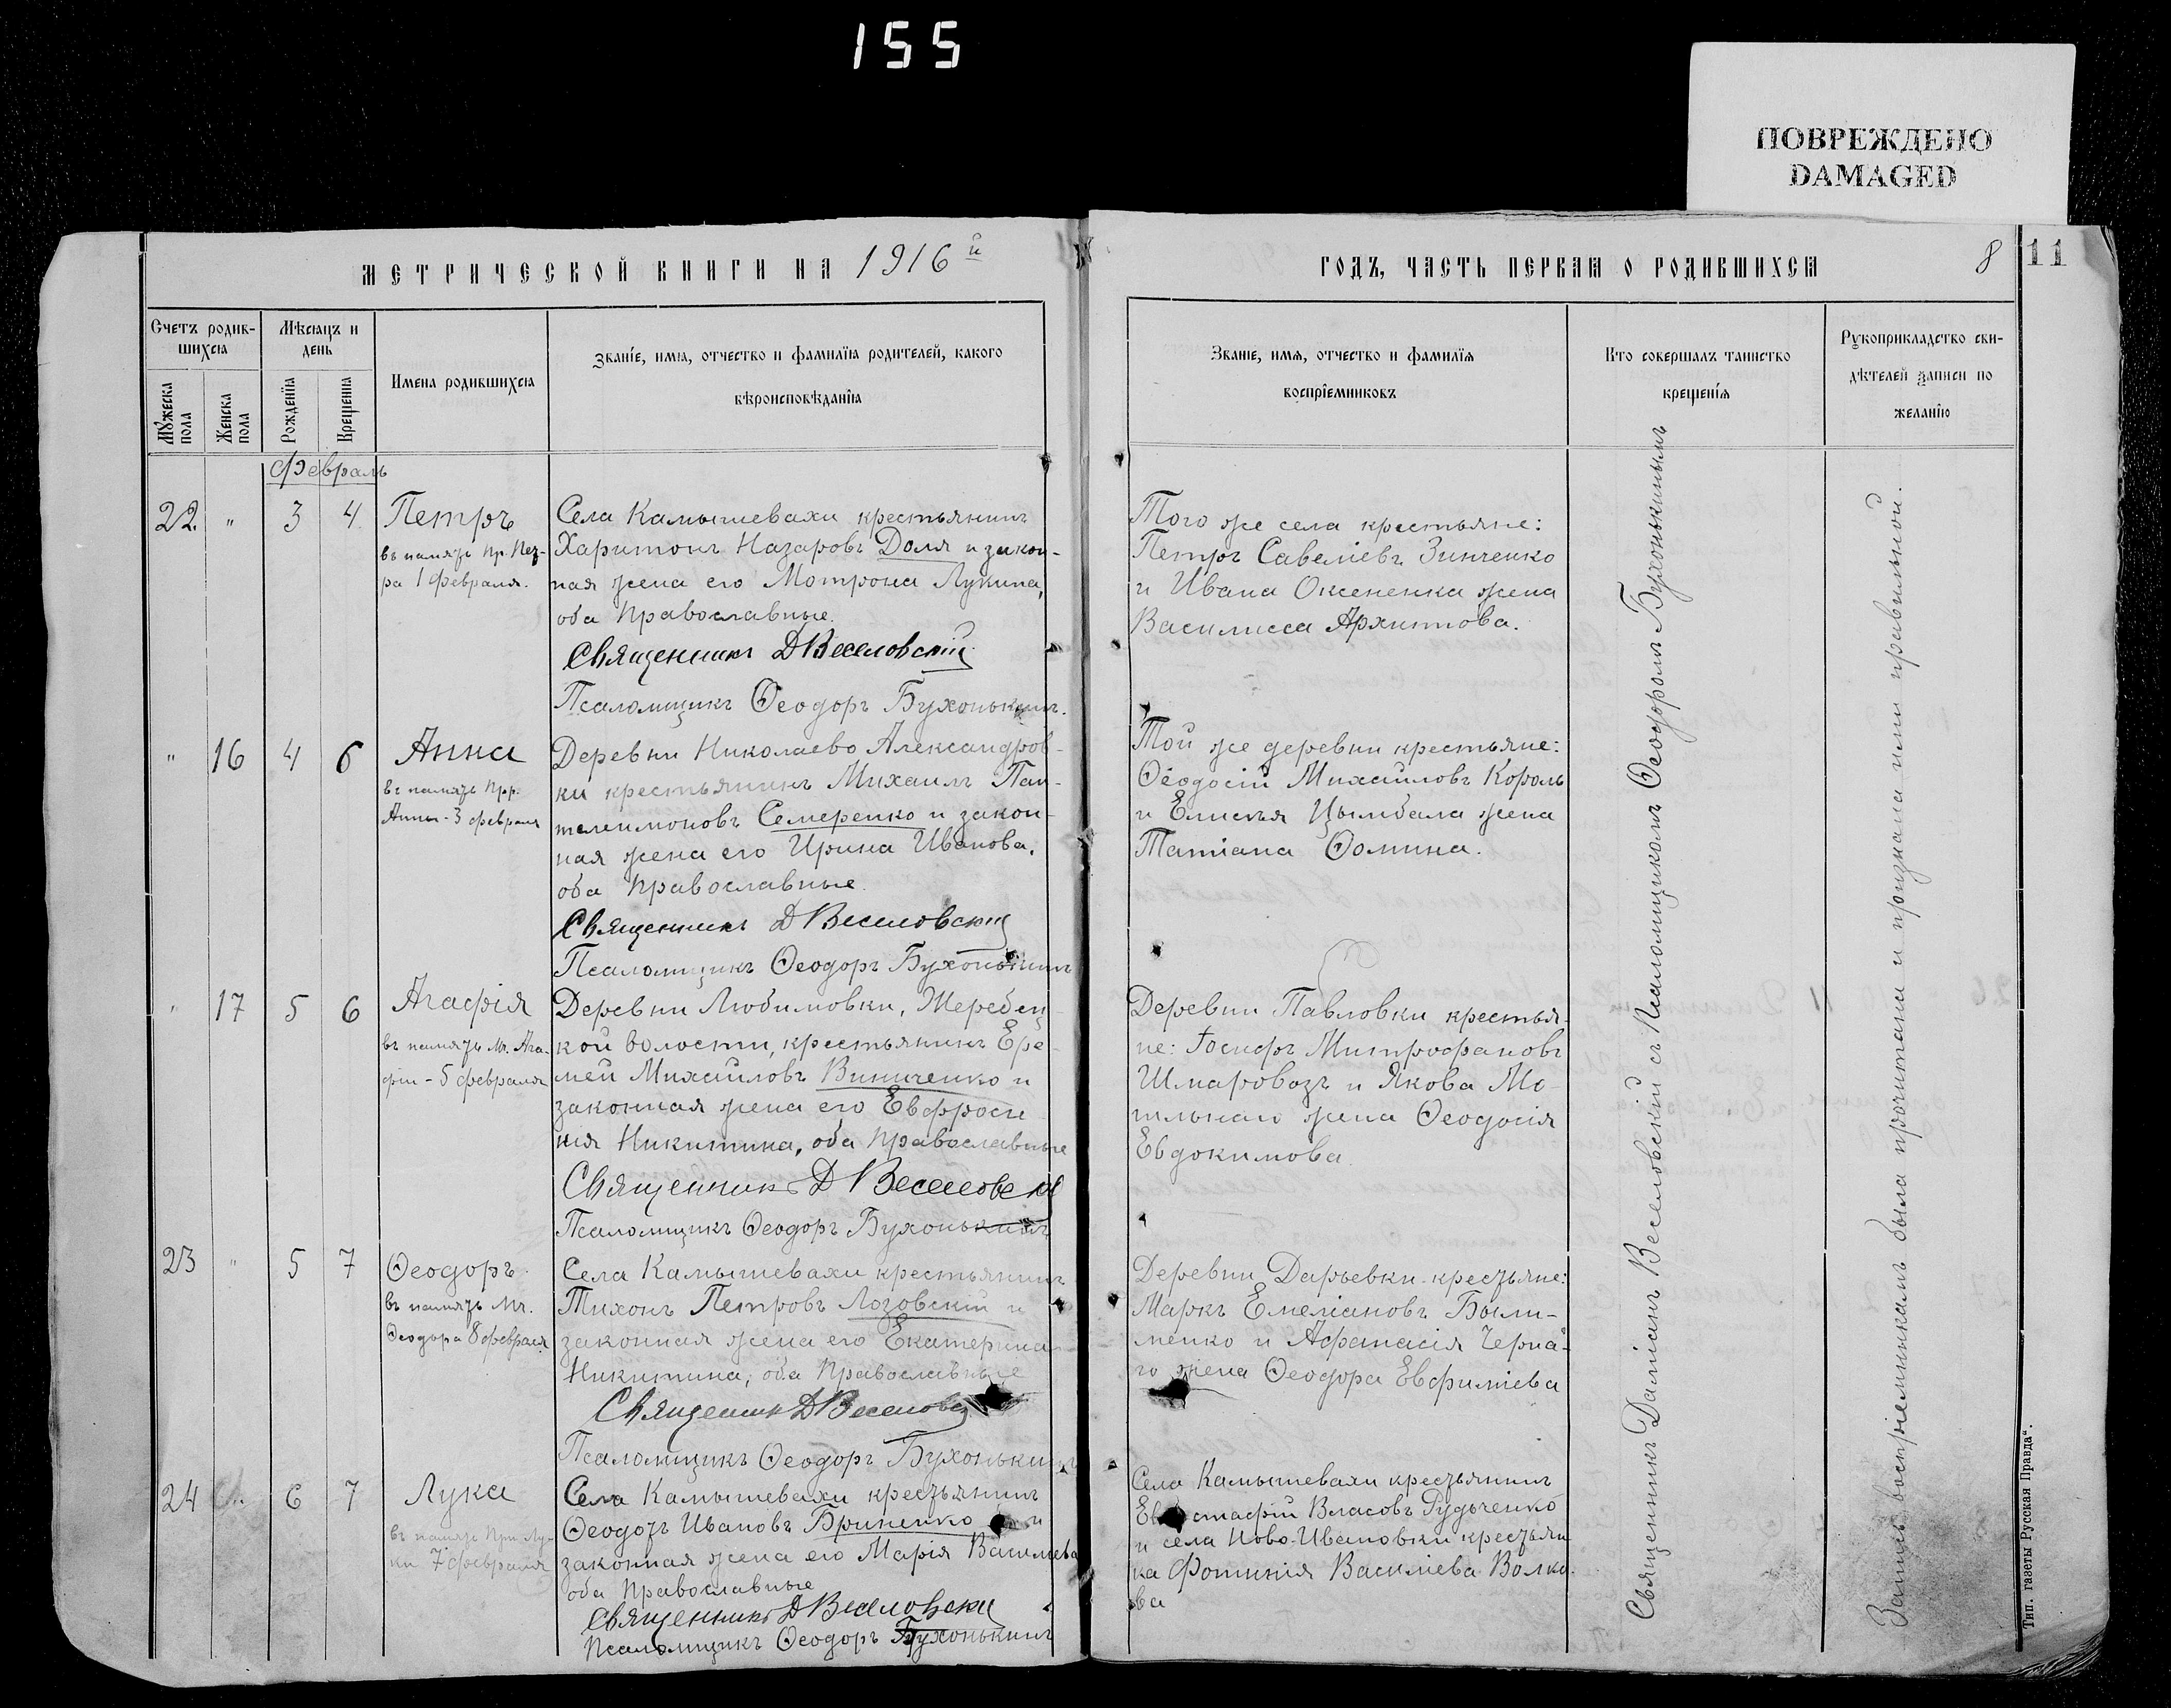 155
ПОВРЕЖДЕНО
DAMAGED
МЕТРИЧЕСКОЙ КНИГИ НА 1916й
ГОДЪ, ЧАСТЬ ПЕРВАЯ О РОДИВШИХСЯ
8
11
Счетъ родив-
шихся
Мѣсяцъ и
день
Мужеска
пола
Женска
пола
Рожденія
Крещенія
Имена родившихся
Званіе, имя, отчество и фамилія родителей, какого
вѣроисповѣданія
Званіе, имя, отчество и фамилія
воспріемниковъ
Кто совершалъ таинство
крещенія
Рукоприкладство сви-
дѣтелей записи по
желанію
Февраль
22 " 3 4
Петръ
въ память пр. Пет-
ра 1 февраля.
Села Камышевахи крестьянинъ
Харитонъ Назаровъ Доля и закон-
ная жена его Мотрона Лукина,
оба православные.
Священникъ Д Веселовскій
Псаломщикъ Ѳеодоръ Бухонькинъ.
Того же села крестьяне:
Петръ Савеліевъ Зинченко
и Ивана Оксененка жена
Василисса Архипова.
" 16 4 6
Анна
въ память Прр.
Анны - 3 февраля
Деревни Николаево Александров-
ки крестьянинъ Михаилъ Пан-
телеимоновъ Семеренко и закон-
ная жена его Ирина Иванова,
оба православные.
Священникъ Д Веселовскій
Псаломщикъ Ѳеодоръ Бухонькинъ
Той же деревни крестьяне:
Ѳеодосій Михайловъ Король
и Елисея Цымбала жена
Татіана Ѳомина.
" 17 5 6
Агафія
въ память Мч. Ага-
фіи - 5 февраля
Деревни Любимовки, Жеребец-
кой волости, крестьянинъ Ере-
мей Михайловъ Винниченко и
законная жена его Евфроси-
нія Никитина, оба православные
Священникъ Д Веселовскій
Псаломщикъ Ѳеодоръ Бухонькинъ
Деревни Павловки крестья-
не: Іосифъ Митрофановъ
Шмаровозъ и Якова Мо-
гильнаго жена Ѳеодосія
Евдокимова.
23 " 5 7
Ѳеодоръ
въ память Мч.
Ѳеодора 8 февраля
Села Камышевахи крестьянинъ
Тихонъ Петровъ Лозовскій и
законная жена его Екатерина
Никитина, оба православные
Священникъ Д Веселовскій
Псаломщикъ Ѳеодоръ Бухонькинъ
Деревни Дарьевки крестьяне:
Маркъ Емеліановъ
и Афанасія Черна-
го жена Ѳеодора Евфиміева
24 " 6 7
Лука
въ память Прп. Лу-
ки 7 февраля
Села Камышевахи крестьянинъ
Ѳеодотъ Ивановъ Бриненко и
законная жена его Марія Васильева
оба православные
Священникъ Д Веселовскій
Псаломщикъ Ѳеодоръ Бухонькинъ
Села Камышевахи крестьянинъ
Евстафій Власовъ Рудченко
и села Ново-Ивановки крестьян-
ка Фотинія Василіева Волко-
ва
Священникъ Даміанъ Веселовскій съ Псаломщикомъ Ѳеодоромъ Бухонькинымъ
Запись воспріемникамъ была прочитана и признана ими правильной.
Тип. газеты „Русская Правда".